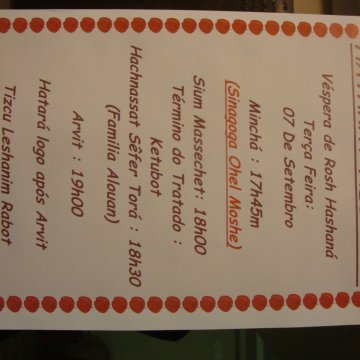 Véspera de Rosh Hashaná
Terça Feira:
07 De Setembro
Minchá : 17h45m
(Sinagoga Ohel Moshe)
Sium Massechet: 18h00
Término do Tratado :
Ketubot
Hachnassat Sêfer Torá : 18h30
(Família Alouan)
Arvit : 19h00
Hatará logo após Arvit
Tizcu Leshanim Rabot